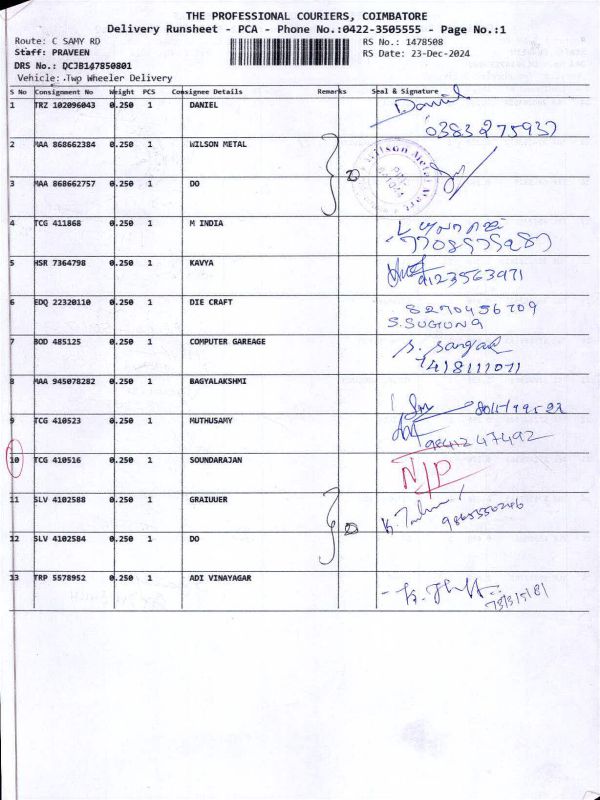 THE PROFESSIONAL COURIERS, COIMBATORE
Delivery Runsheet - PCA - Phone No.:0422-3505555 - Page No.:1
Route: C SAMY RD RS No.: 1478508
Staff: PRAVEEN RS Date: 23-Dec-2024
DRS No.: DCJB147850801
Vehicle: Twp Wheeler Delivery
S No Consignment No Weight PCS Consignee Details Remarks Seal & Signature
1 TRZ 102096043 0.250 1 DANIEL Daniel
2 MAA 868662384 0.250 1 WILSON METAL
3 MAA 868662757 0.250 1 DO
4 TCG 411868 0.250 1 M INDIA
5 HSR 7364798 0.250 1 KAVYA 9123563971
6 EDQ 22320110 0.250 1 DIE CRAFT 8270456709
S.SUGUNA
7 BOD 485125 0.250 1 COMPUTER GAREAGE
7418111071
8 MAA 945078282 0.250 1 BAGYALAKSHMI
9 TCG 410523 0.250 1 MUTHUSAMY
10 TCG 410516 0.250 1 SOUNDARAJAN N/P
11 SLV 4102588 0.250 1 GRAIUUER
12 SLV 4102584 0.250 1 DO
13 TRP 5578952 0.250 1 ADI VINAYAGAR